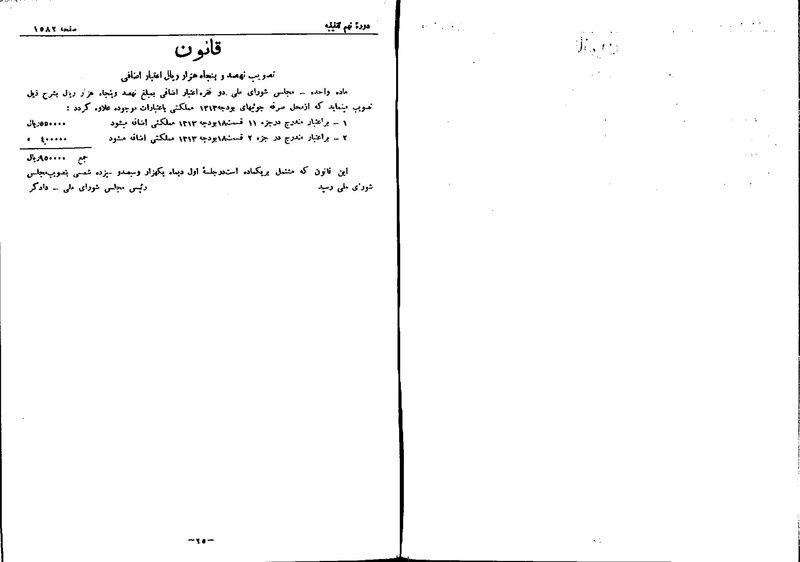 دورهٔ نهم تقنینیه
صفحه ۱۵۸۲
قانون
تصویب نهصد و پنجاه هزار ریال اعتبار اضافی
ماده واحده – مجلس شورای ملی دو فقره اعتبار اضافی بمبلغ نهصد وپنجاه هزار ریال بشرح ذیل
تصویب مینماید که ازمحل صرفه جوئیهای بودجه۱۳۱۳ مملکتی باعتبارات موجوده علاوه گردد :
۱ – براعتبار مندرج درجزء ۱۱ قسمت۱۸بودجه ۱۳۱۳ مملکتی اضافه میشود ۵۵۰۰۰۰ریال
۲ – براعتبار مندرج در جزء ۲ قسمت۱۸بودجه ۱۳۱۳ مملکتی اضافه میشود ۴۰۰۰۰۰ »
جمع ۹۵۰۰۰۰ریال
این قانون که مشتمل بریکماده است درجلسهٔ اول دیماه یکهزار وسیصدو سیزده شمسی بتصویب مجلس
شورای ملی رسید رئیس مجلس شورای ملی – دادگر
–۲۵–